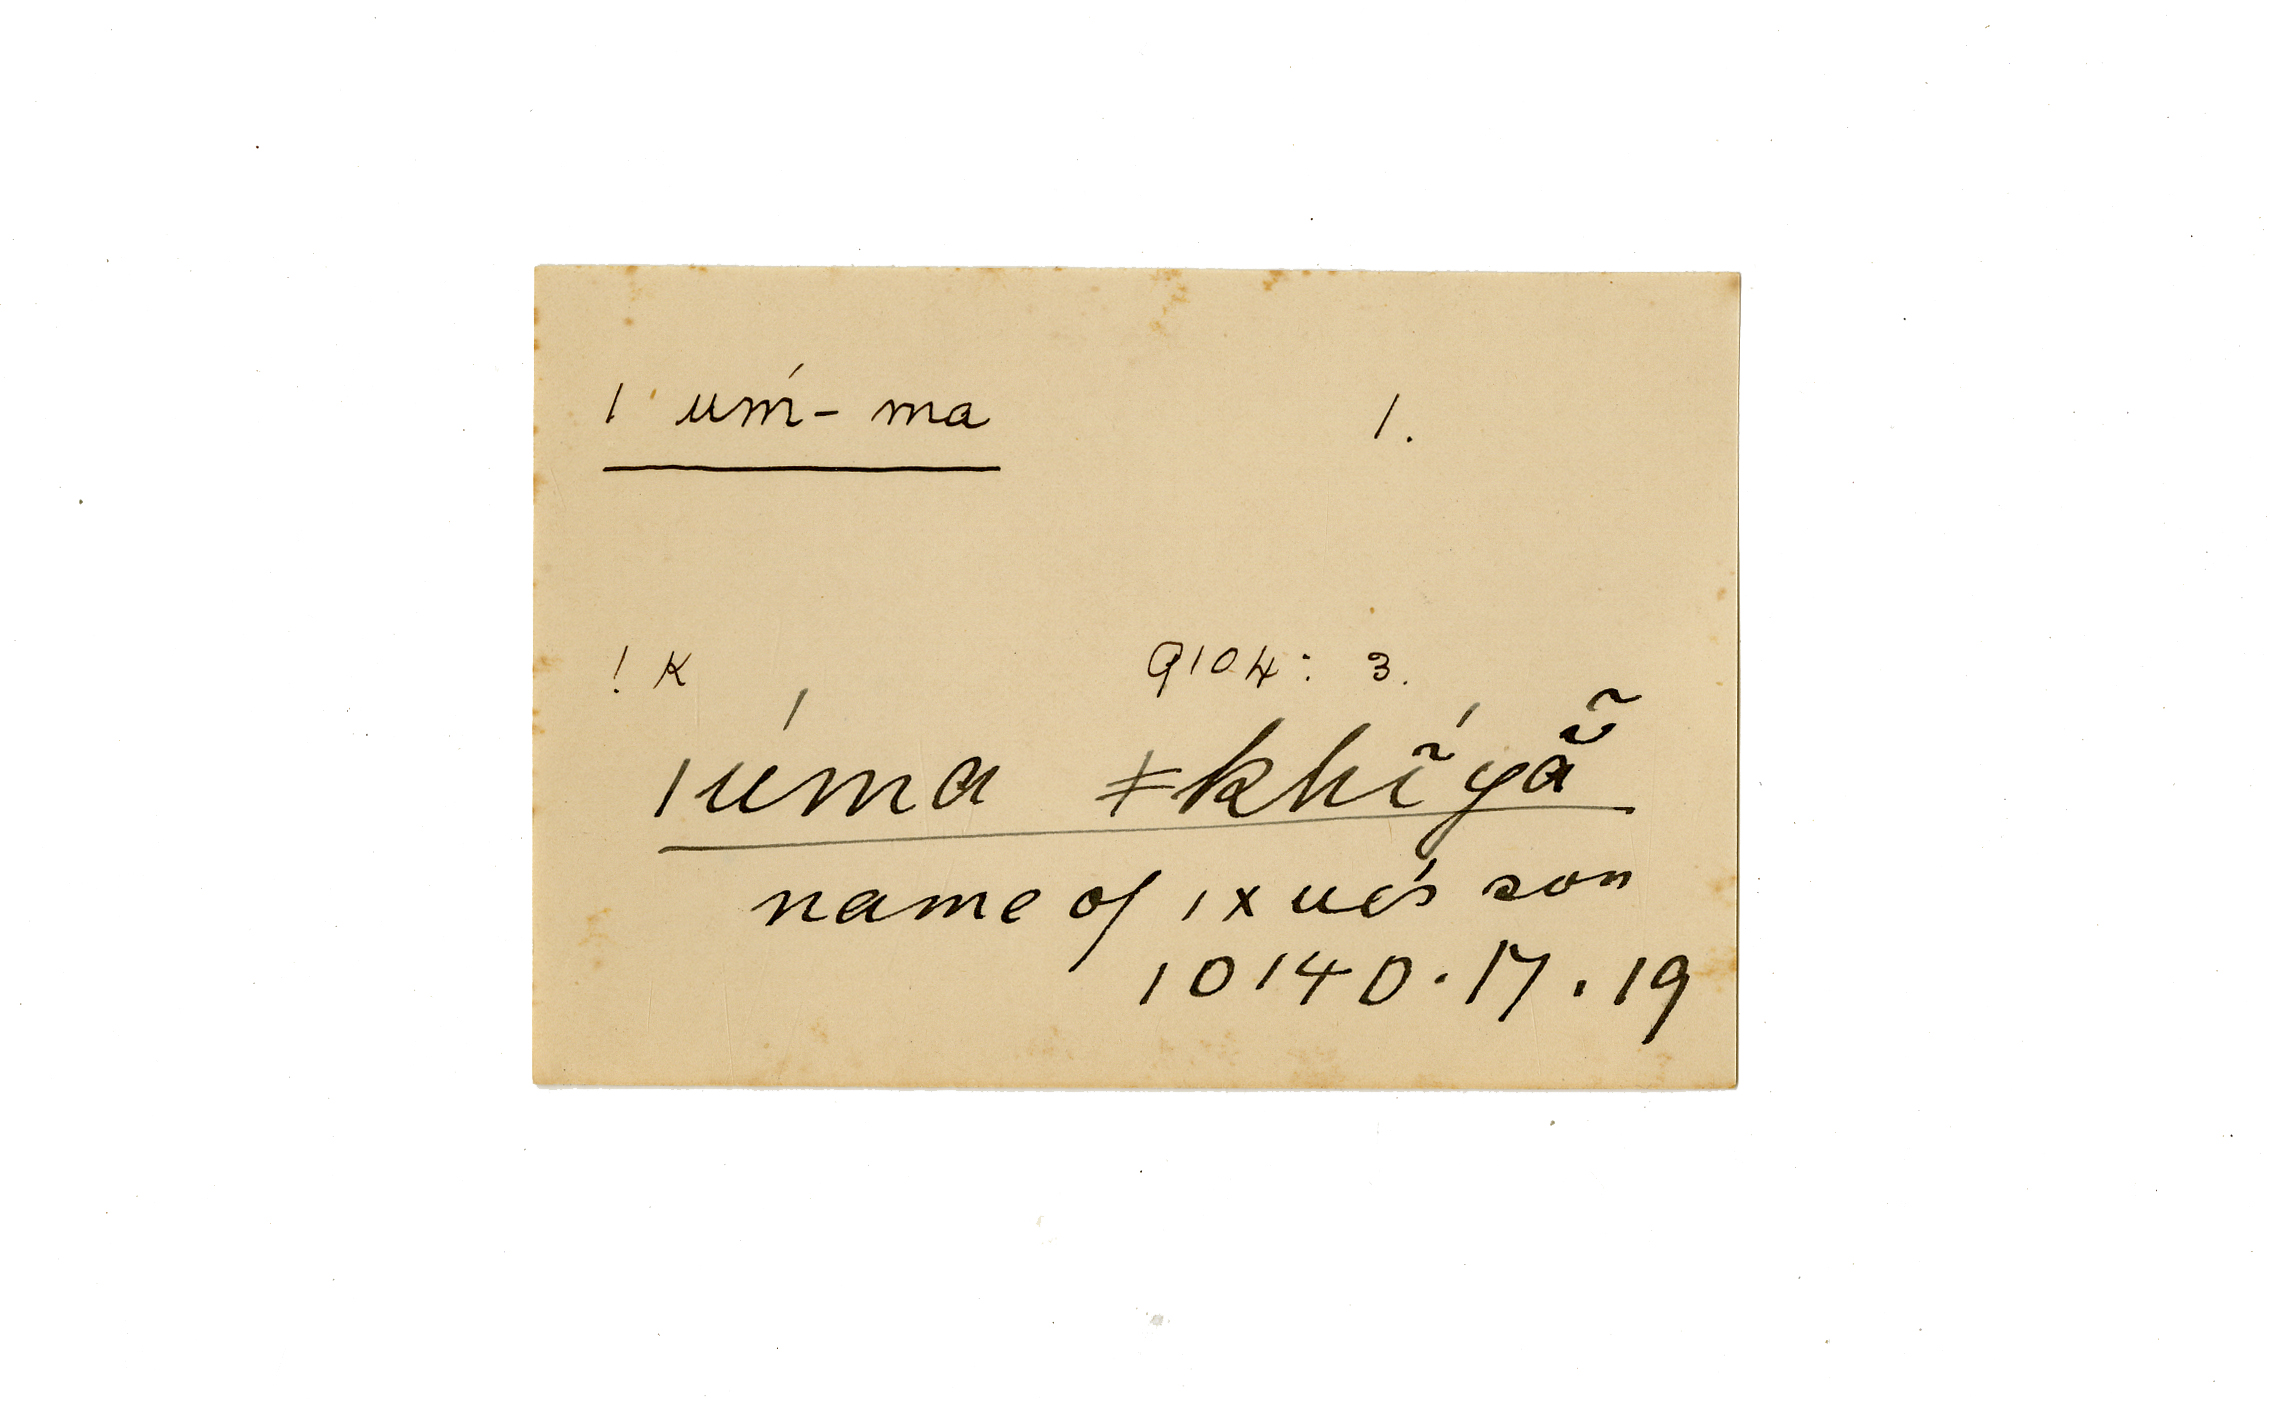 ǀ uḿ-ma ǀ.
! K 9104: 3.
ǀúma ǂkhĩ́yã̆
name of ǀxue's son
10140. 17. 19